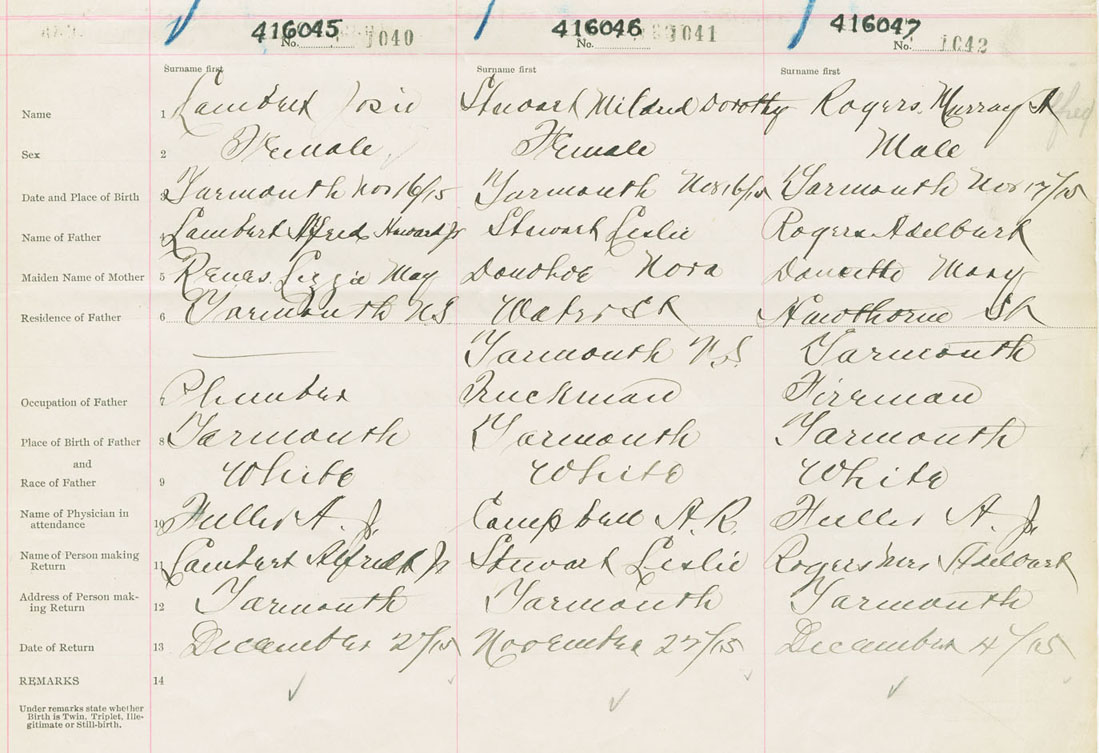 416045 416046 416047
No. 1040 No. 1041 No. 1042
Surname first Surname first Surname first
Name 1 Lambert Josie Stewart Mildred Dorothy Rogers Murray A
Sex 2 Female Female Male
Date and Place of Birth 3 Yarmouth Nov 16/15 Yarmouth Nov 16/15 Yarmouth Nov 17/15
Name of Father 4 Lambert Alfred Howard Jr Stewart Leslie Rogers Adelburt
Maiden Name of Mother 5 Lizzie May Donohoe Nora Doucette Mary
Residence of Father 6 Yarmouth N.S. Water St Hawthorne St
Yarmouth N.S. Yarmouth
Occupation of Father 7 Plumber Truckman Fireman
Place of Birth of Father 8 Yarmouth Yarmouth Yarmouth
and
Race of Father 9 White White White
Name of Physician in attendance 10 Fuller A. J. Campbell A. R. Fuller A. J.
Name of Person making Return 11 Lambert Alfred H Jr Stewart Leslie Rogers Mrs Adelburt
Address of Person making Return 12 Yarmouth Yarmouth Yarmouth
Date of Return 13 December 2/15 November 27/15 December 4/15
REMARKS 14
Under remarks state whether
Birth is Twin, Triplet, Ille-
gitimate or Still-birth.